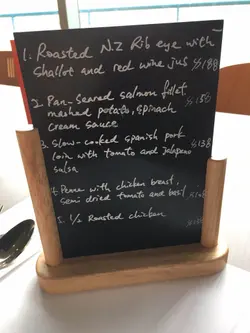 1. Roasted N.Z Rib eye with
shallot and red wine jus $188
2. Pan-Seared salmon fillet
mashed potato, spinach
cream sauce $158
3. Slow-cooked spanish pork
loin with tomato and jalapeno
salsa $138
4. Penne with chicken breast,
semi dried tomato and basil
5. 1/2 Roasted chicken